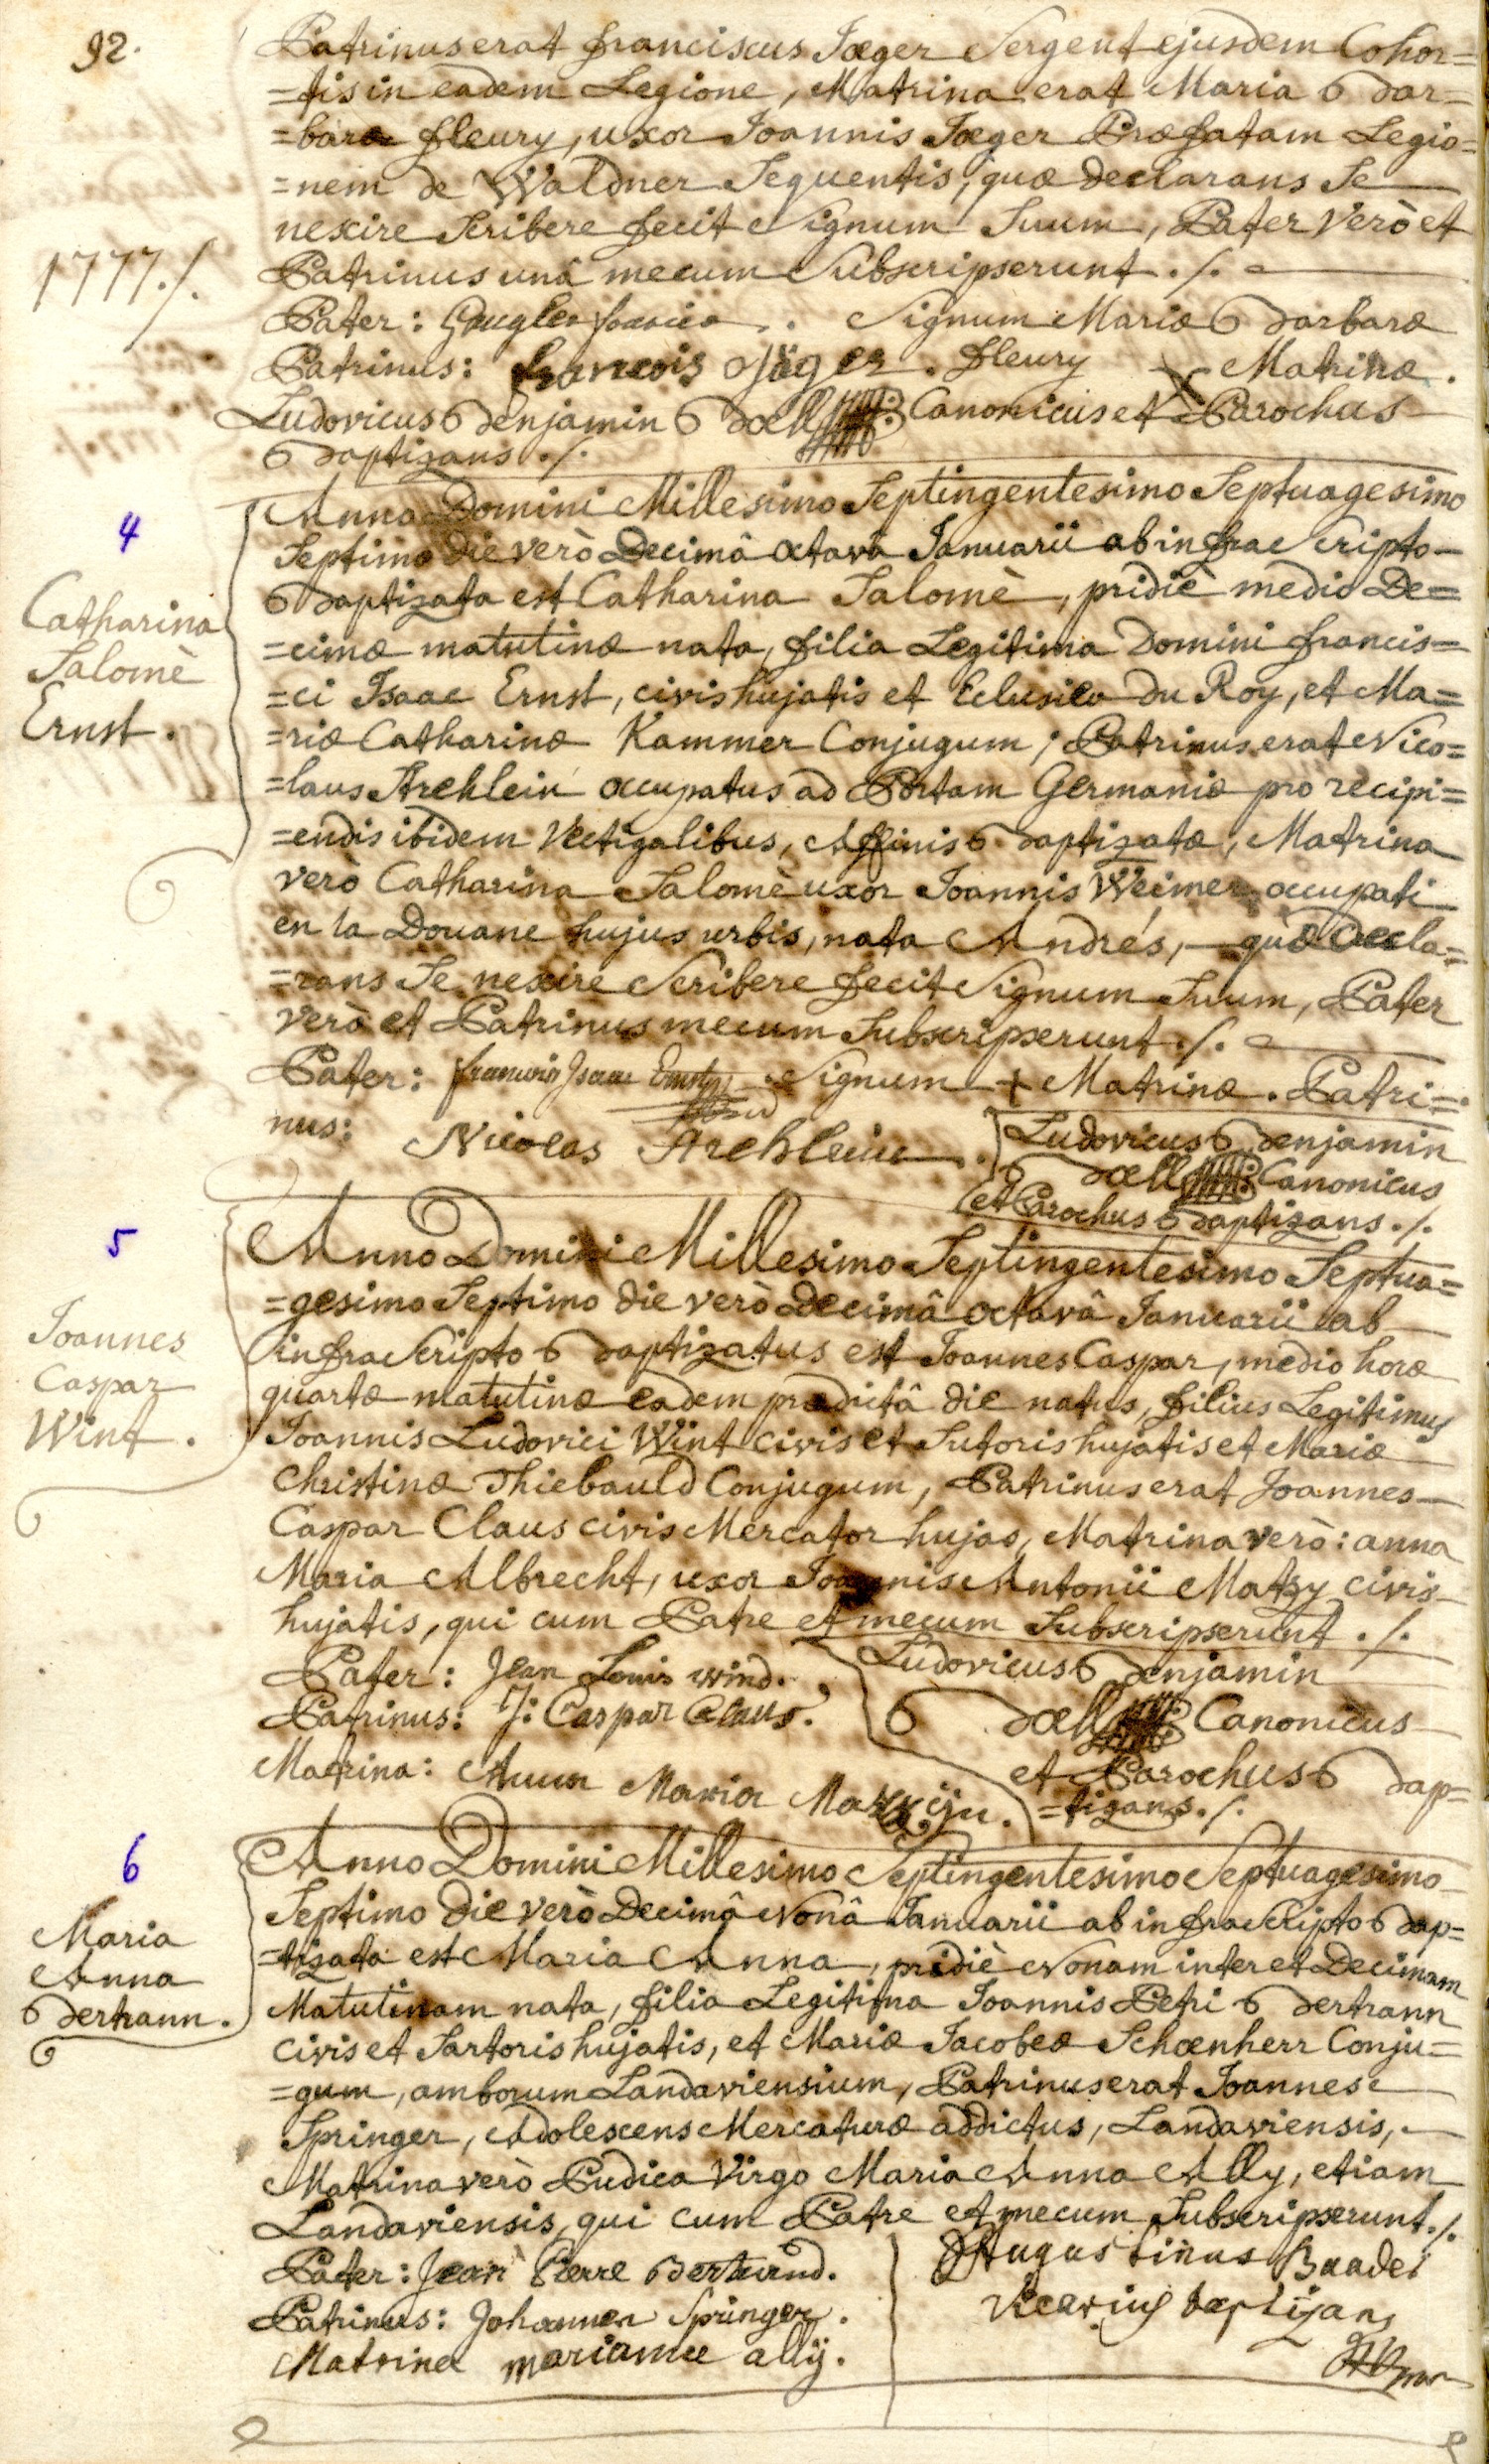 92.
Patrinus erat franciscus Jæger Sergent ejusdem Cohor=
=tis in eadem Legione, Matrina erat Maria Bar=
=baræ fleury, uxor Joannis Jæger Præfatam Legio=
=nem de Waldner Sequentis, quæ declarans Se
nescire Scribere fecit Signum Suum, Pater Verò et
1777./.
Patrinus unâ mecum Subscripserunt ./.
Pater: . Signum Mariæ Barbaræ
Patrinus: francois Jäger . fleury Matrinæ .
Ludovicus Benjamin Bœll Canonicus et Parochus
Baptizans ./.
4
Catharina
Salomè
Ernst .
Anno Domini Millesimo Septingentesimo Septuagesimo
Septimo die verò Decimâ octavâ Januarii ab infra Scripto
Baptizata est Catharina Salomè, pridiè mediô De=
=cimæ matutinæ nata, filia Legitima Domini francis=
=ci Isaac Ernst, civis hujatis et Eclusier du Roy, et Ma=
=riæ Catharinæ Kammer Conjugum ; Patrinus erat Nico=
=laus Arehlein occupatus ad Portam Germaniæ pro recipi=
=endis ibidem Vectigalibus, Affinis Baptizatæ, Matrina
verò Catharina Salomè uxor Joannis Weimer occupati
en la Douane hujus urbis, nata Andrés, quæ Decla=
=rans Se nescire Scribere fecit Signum Suum, Pater
verò et Patrinus mecum Subscripserunt ./.
Pater: francois Isaac Ernst . Signum + Matrinæ . Patri=
nus: Nicolas Arehlein .
Ludovicus Benjamin
Bœll Canonicus
et Parochus Baptizans ./.
5
Joannes
Caspar
Wint .
Anno Domini Millesimo Septingentesimo Septua=
=gesimo Septimo die verò Decimâ octavâ Januarii ab
infra Scripto Baptizatus est Joannes Caspar, mediô horæ
quartæ matutinæ eadem prædictâ die natus, filius Legitimus
Joannis Ludovici Wint civis et Sutoris hujatis et Mariæ
Christinæ Thiebauld Conjugum, Patrinus erat Joannes
Caspar Claus civis Mercator hujas, Matrina verò: anna
Maria Albrecht, uxor Joannis Antonii Matzy civis
hujatis, qui cum Patre et mecum Subscripserunt ./.
Pater: Jean Louis wind.
Patrinus: J: Caspar Claus.
Matrina: Anna Maria
Ludovicus Benjamin
Bœll Canonicus
et Parochus Bap=
=tizans ./.
6
Maria
Anna
Bertrann.
Anno Domini Millesimo Septingentesimo Septuagesimo
Septimo die verò Decimâ Nonâ Januarii ab infra Scripto Bap=
=tizata est Maria Anna, pridiè Nonam inter et Decimam
Matutinam nata, filia Legitima Joannis Petri Bertrann
civis et Sartoris hujatis, et Mariæ Jacobeæ Schœnherr Conju=
=gum, amborum Landaviensium, Patrinus erat Joannes
Springer, Adolescens Mercaturæ addictus, Landaviensis,
Matrina verò Pudica Virgo Maria Anna Ally, etiam
Landaviensis, qui cum Patre et mecum Subscripserunt ./.
Pater: Jean Pierre Bertrand.
Patrinus: Johannes Springer.
Matrina mariane allÿ.
Augustinus Baader
Vicarius baptizans